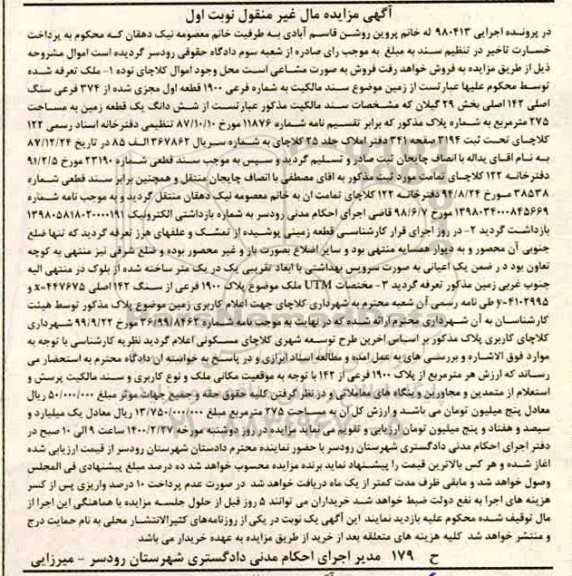 آگهی مزایده مال غیر منقول نوبت اول
در پرونده اجرایی ۹۸۰۴۱۳ له خانم پروین روشن قاسم آبادی به طرفیت خانم معصومه نیک دهقان که محکوم به پرداخت
خسارت تاخیر در تنظیم سند به مبلغ به موجب رای صادره از شعبه سوم دادگاه حقوقی رودسر گردیده است اموال مشروحه
ذیل از طریق مزایده به فروش خواهد رفت فروش به صورت مشاعی است محل وجود اموال کلاچای نوده ۱- ملک تعرفه شده
توسط محکوم علیها عبارتست از زمین موضوع سند مالکیت به شماره فرعی ۱۹۰۰ قطعه اول مجزی شده از ۳۷۴ فرعی سنگ
اصلی ۱۴۲ اصلی بخش ۲۹ گیلان که مشخصات سند مالکیت مذکور عبارتست از شش دانگ یک قطعه زمین به مساحت
۲۷۵ مترمربع به شماره پلاک مذکور که برابر تقسیم نامه شماره ۱۱۸۷۶ مورخ ۸۷/۱۰/۱۰ تنظیمی دفترخانه اسناد رسمی ۱۲۲
کلاچای تحت ثبت ۴۱۹۴ صفحه ۳۴۱ دفتر املاک جلد ۲۵ کلاچای به شماره سریال ۳۶۷۸۶۲ الف ۸۵ در تاریخ ۸۷/۱۲/۲۴
به نام اقای یداله با انصاف چایجان ثبت صادر و تسلیم گردید و سپس به موجب سند قطعی شماره ۲۳۱۹۰ مورخ ۹۱/۲/۵
دفترخانه ۱۲۲ کلاچای تمامت مورد ثبت مذکور به اقای مصطفی با انصاف چایجان منتقل و همچنین برابر سند قطعی شماره
۳۸۵۳۸ مورخ ۹۴/۸/۲۴ دفترخانه ۱۲۲ کلاچای تمامت ان به خانم معصومه نیک دهقان منتقل گردید و به موجب نامه شماره
۱۳۹۸۰۳۴۰۰۰۸۴۵۶۶۹ مورخ ۹۸/۶/۷ قاضی اجرای احکام مدنی رودسر به شماره بازداشتی الکترونیک ۱۳۹۸۰۵۸۱۸۰۲۰۰۰۰۱۹۱
بازداشت گردید ۲- در روز اجرای قرار کارشناسی قطعه زمینی پوشیده از تمشک و علفهای هرز تعرفه گردید که تنها ضلع
جنوبی آن محصور و به دیوار همسایه منتهی بود و سایر اضلاع بصورت باز و غیر محصور بوده و ضلع شرقی نیز منتهی به کوچه
تعاون بود در ضمن یک اعیانی به صورت سرویس بهداشتی با ابعاد تقریبی یک در یک متر ساخته شده از بلوک در منتهی الیه
جنوب غربی زمین مذکور تعرفه گردید ۳- مختصات UTM ملک موضوع پلاک ۱۹۰۰ فرعی از سنگ ۱۴۲ اصلی x=۴۴۷۶۷۵ و
y=۴۱۰۲۹۹۵ طی نامه رسمی آن شعبه محترم به شهرداری کلاچای جهت اعلام کاربری زمین موضوع پلاک مذکور توسط هیئت
کارشناسان به آن شهرداری محترم ارائه شده که در نهایت به موجب نامه شماره ۳۶/۹۹/۸۴۶۲ مورخ ۹۹/۹/۲۲ شهرداری
کلاچای کاربری پلاک مذکور بر اساس اخرین طرح توسعه شهری کلاچای مسکونی اعلام گردید نظریه کارشناسی با توجه به
موارد فوق الاشاره و بررسی های به عمل امده و مطالعه اسناد ابرازی و در پاسخ به خواسته ان دادگاه محترم به استحضار می
رساند که ارزش هر مترمربع از پلاک ۱۹۰۰ فرعی از ۱۴۲ با توجه به موقعیت مکانی ملک و نوع کاربری و سند مالکیت پرسش و
استعلام از متعدین و مجاورین و بنگاه های معاملاتی و در نظر گرفتن کلیه حقوق حقه و جمیع جهات موثر مبلغ ۵۰/۰۰۰/۰۰۰ ریال
معادل پنج میلیون تومان می باشد و ارزش کل آن به مساحت ۲۷۵ مترمربع مبلغ ۱۳/۷۵۰/۰۰۰/۰۰۰ ریال معادل یک میلیارد و
سیصد و هفتاد و پنج میلیون تومان ارزیابی و تقویم می نماید مزایده در روز دوشنبه مورخه ۱۴۰۰/۲/۲۷ ساعت ۹ الی ۱۰ صبح در
دفتر اجرای احکام مدنی دادگستری شهرستان رودسر با حضور نماینده محترم دادستان شهرستان رودسر از قیمت ارزیابی شده
اغاز شده و هر کس بالاترین قیمت را پیشنهاد نماید برنده مزایده محسوب خواهد شد ده درصد مبلغ پیشنهادی فی المجلس
وصول خواهد شد و مابقی ظرف مدت کمتر از یک ماه دریافت خواهد شد در صورت عدم پرداخت ۱۰ درصد واریزی پس از کسر
هزینه های اجرا به نفع دولت ضبط خواهد شد خریداران می توانند ۵ روز قبل از حلول جلسه مزایده با هماهنگی این اجرا از
مال توقیف شده محکوم علیه بازدید نمایند این آگهی یک نوبت در یکی از روزنامه‌های کثیرالانتشار محلی به نام حمایت درج
و منتشر خواهد شد کلیه هزینه های متعلقه بعد از خرید از طریق مزایده به عهده خریدار می باشد
ح ۱۷۹ مدیر اجرای احکام مدنی دادگستری شهرستان رودسر - میرزایی